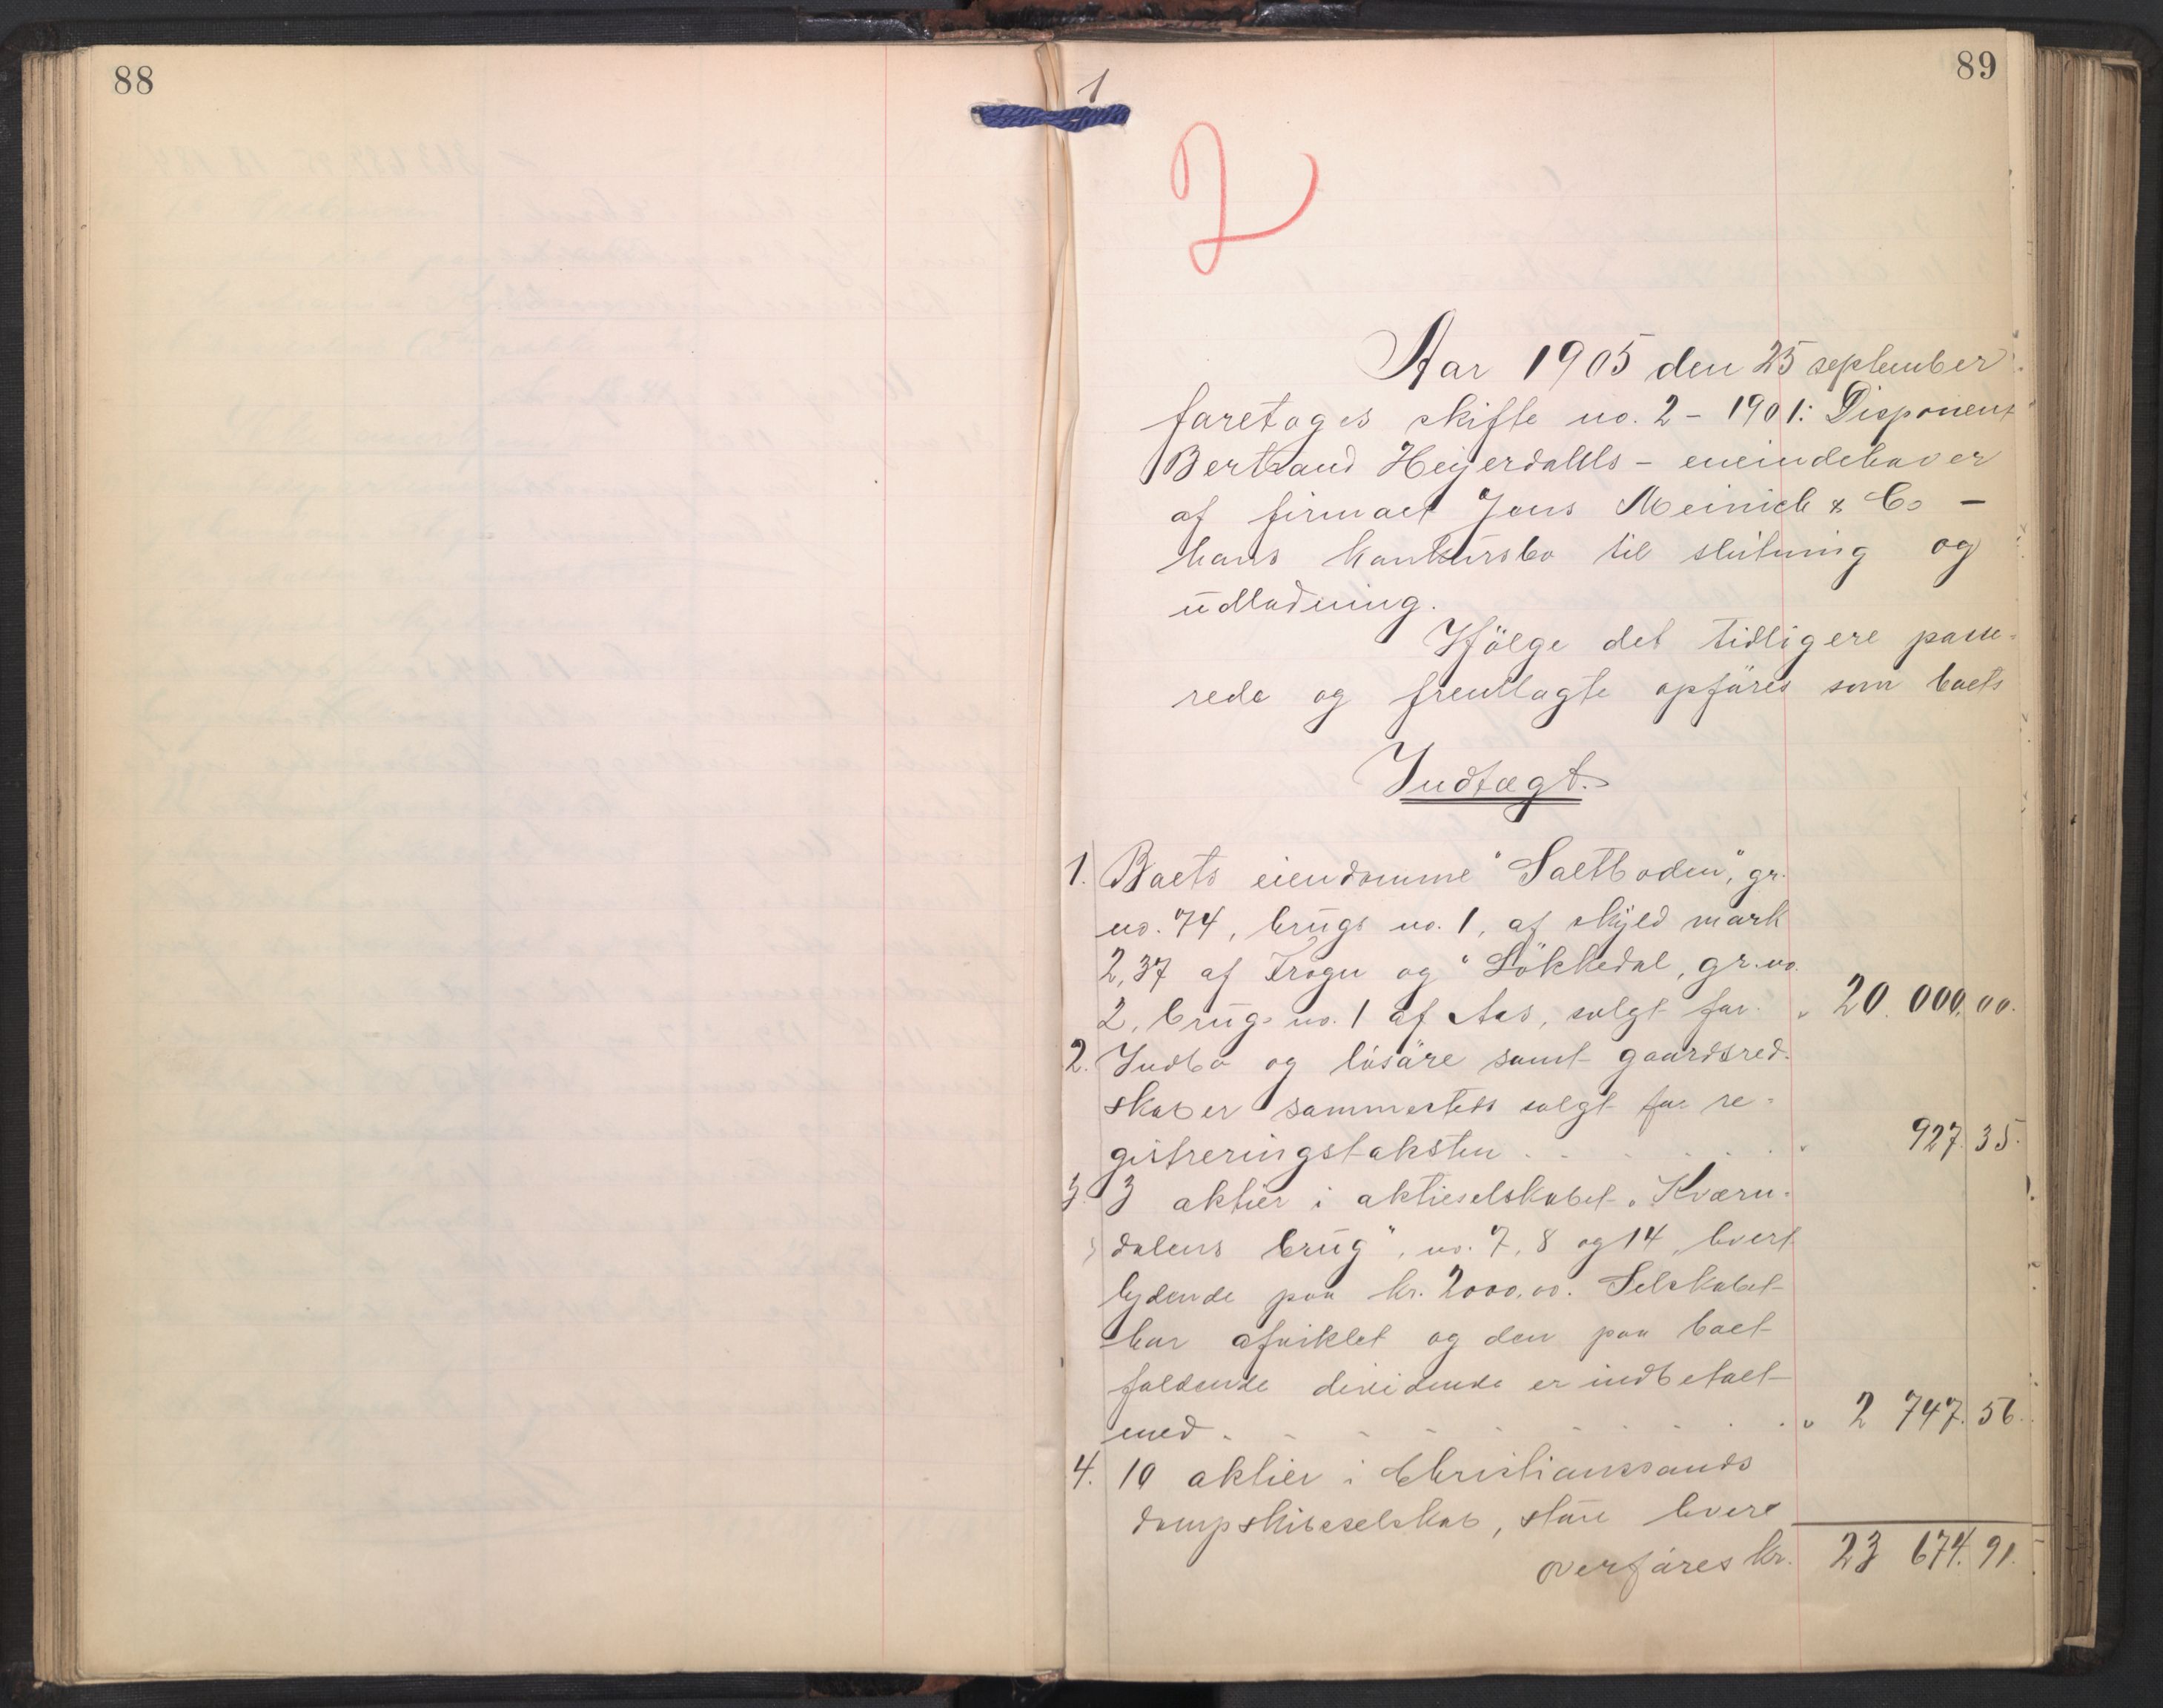 88
1
89
2
Aar 1905 den 25 september
foretoges skifte no. 2 - 1901: Disponent
Bertrand Heyerdahls - eneindehaver
af firmaet Jens Meinich & Co -
hans konkursbo til slutning og
udlodning.
Ifölge det tidligere passe-
rede og fremlagte opföres som boets
Indtægt.
1. Boets eiendomme "Saltboden", gr.
no. 74, brugs no. 1, af skyld mark
2,37 af Frogn og "Lökkedal, gr. no.
2, brugs no. 1 af Aas, solgt for. " 20 000,00.
2. Indbo og lösöre samt gaardsred-
skaber sammesteds solgt for re-
gistreringstaksten . . . . . . " 927.35.
3. 3 aktier i aktieselskabet "Kværn-
dalens brug", no. 7, 8 og 14, hver
lydende paa kr. 2000.00. Selskabet
har afviklet og den paa boet
faldende dividende er indbetalt
med . . . . . . . . . " 2 747.56.
4. 10 aktier i Christianssands
dampskibsselskab, store hver
overföres kr. 23 674.91.